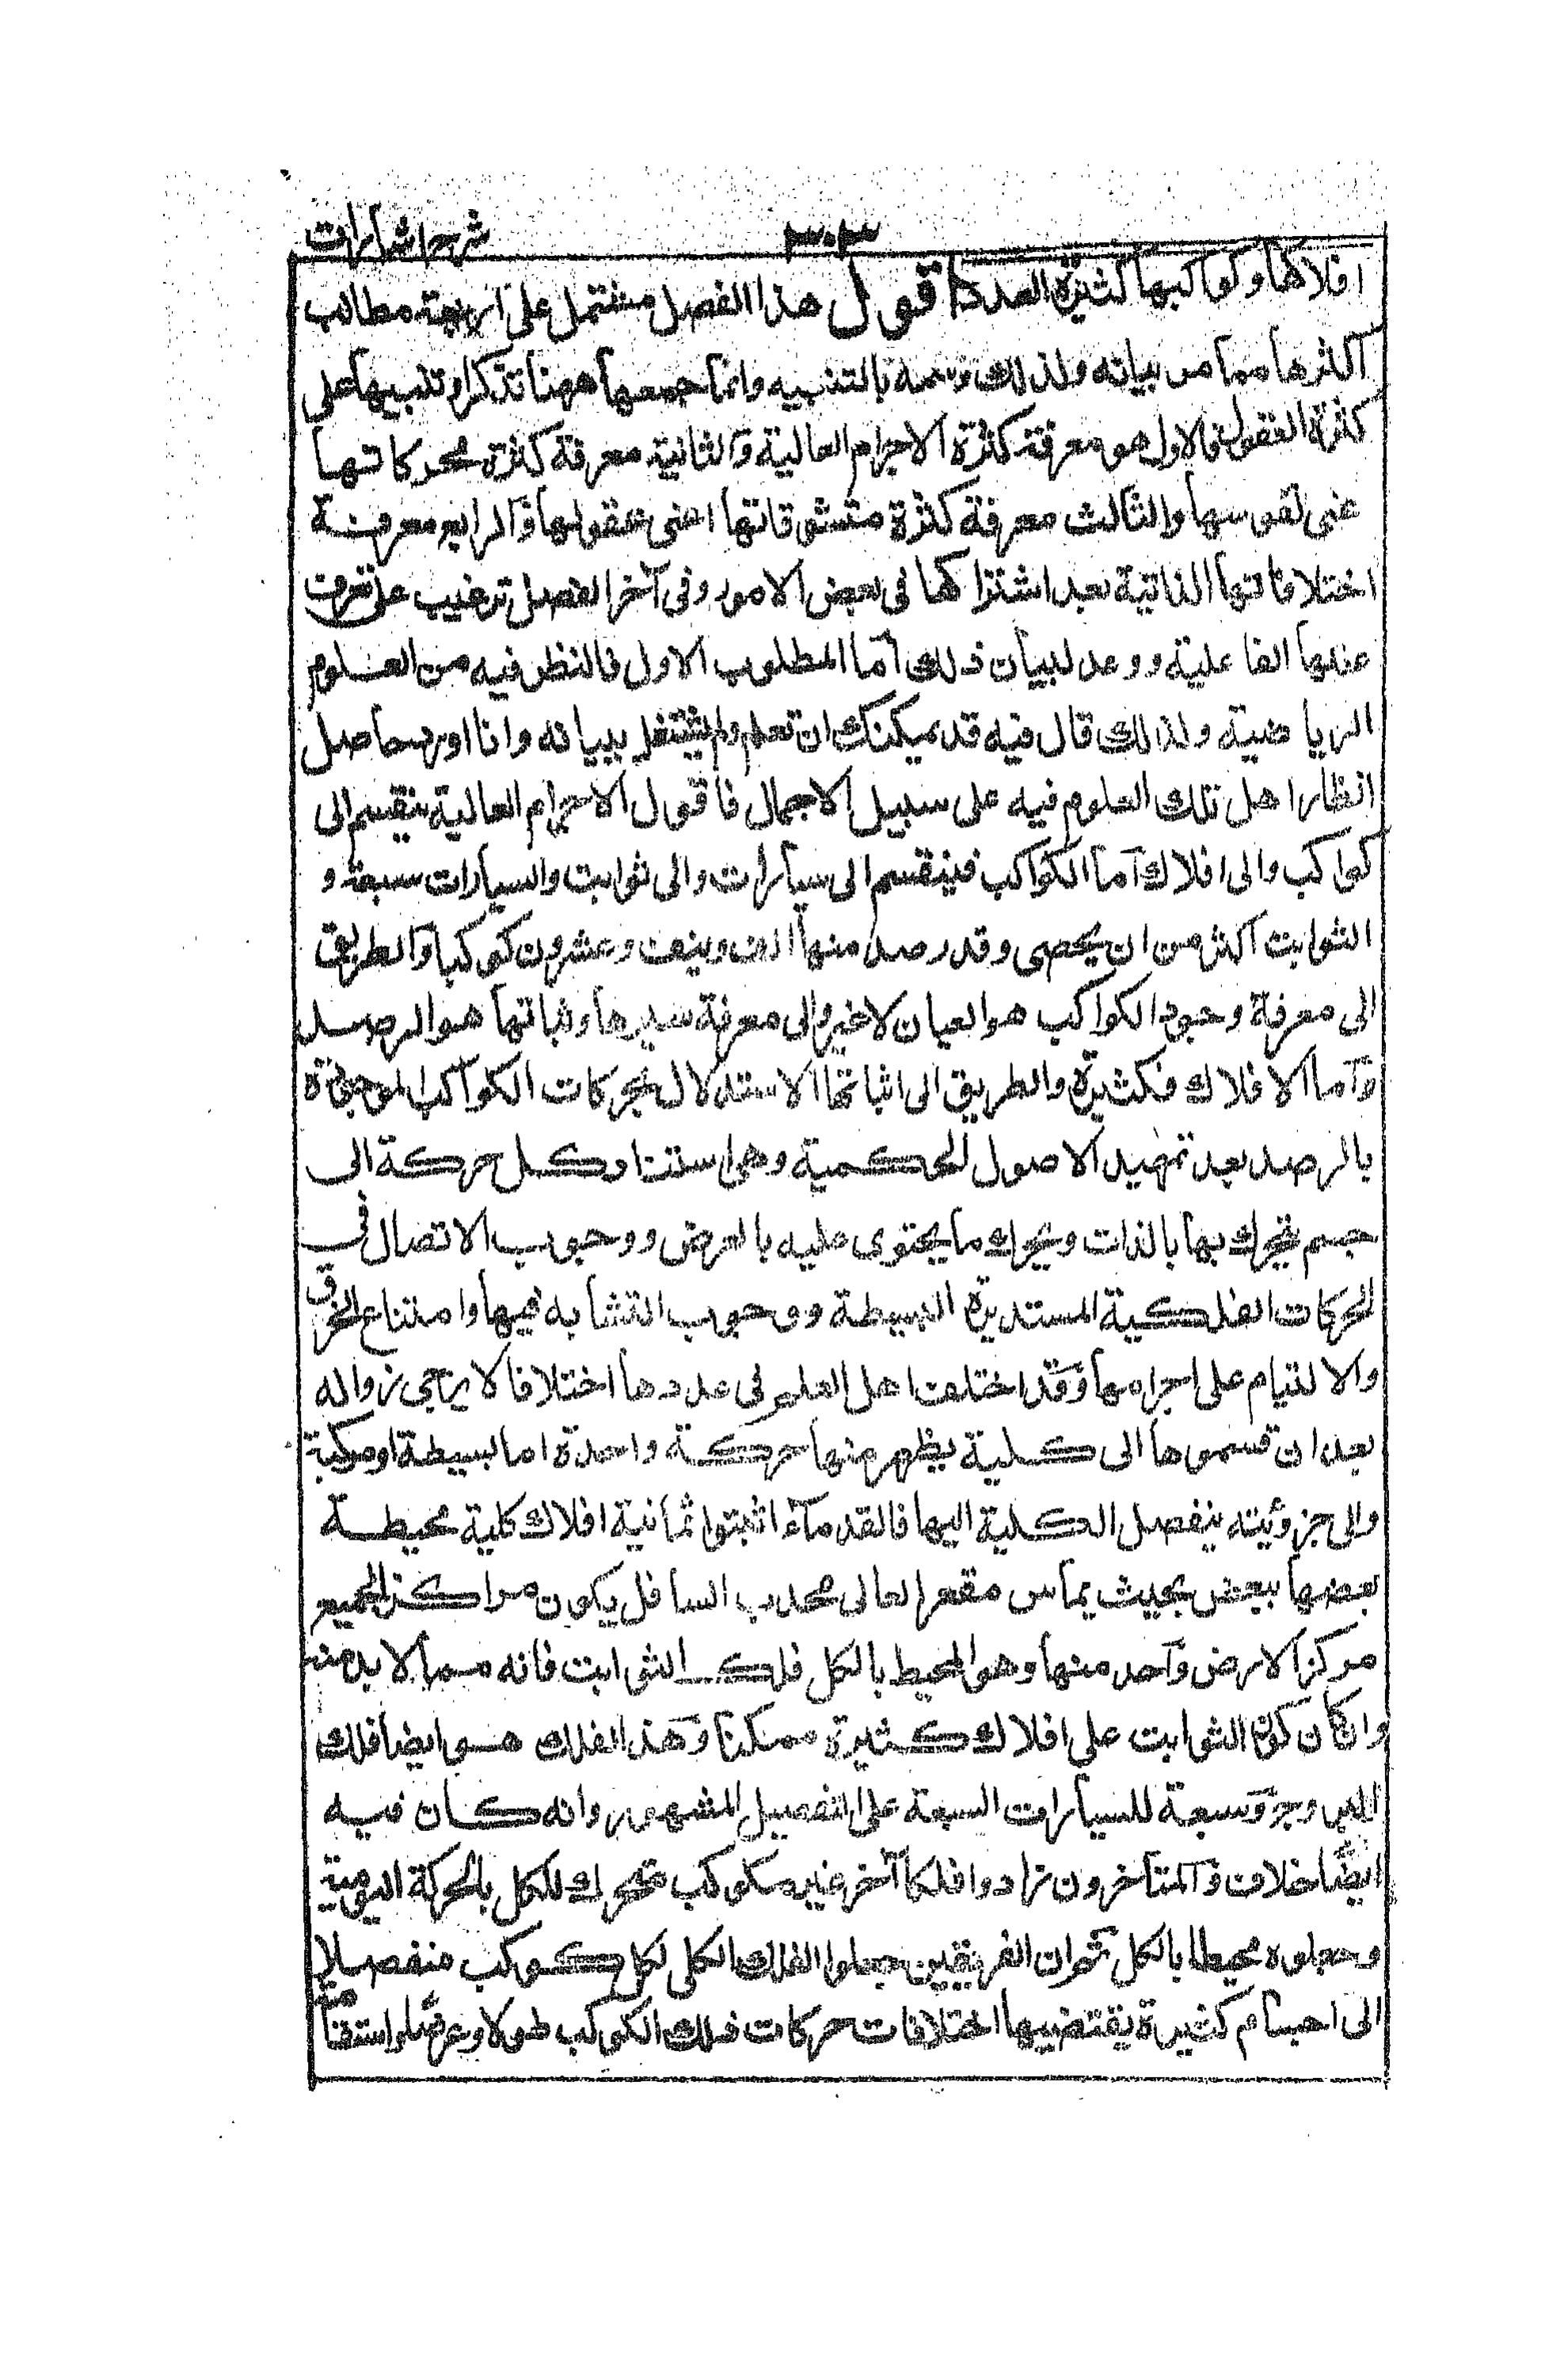 ٣٠٣
شرح اشارات
افلاكها وكواكبها كثيرة العدد اقول هذا الفصل مشتمل على اربعة مطالب
اكثرها مما مر بيانه ولذلك وسمه بالتنبيه وانما جمعها ههنا تذكارا وتنبيها على
كثرة العقول فالاول هو معرفة كثرة الاجرام العالية والثانية معرفة كثرة محركاتها
عنى نفوسها والثالث معرفة كثرة متشوقاتها اعنى عقولها والرابع معرفة
اختلافاتها الذاتية بعد اشتراكها فى بعض الامور وفى آخر الفصل ترغيب على تعرف
عللها الفاعلية ووعد لبيان ذلك اما المطلوب الاول فالنظر فيه من العلوم
الرياضية ولذلك قال فيه قد يمكنك ان تعلم ولم يشتغل ببيانه وانا اورد حاصل
انظار اهل تلك العلوم فيه على سبيل الاجمال فاقول الاجرام العالية ينقسم الى
كواكب والى افلاك اما الكواكب فينقسم الى سيارات والى ثوابت والسيارات سبعة و
الثوابت اكثر من ان يحصى وقد رصد منها الف ونيف وعشرون كوكبا والطريق
الى معرفة وجود الكواكب هو العيان لاغير والى معرفة سيرها وثباتها هو الرصد
وآما الافلاك فكثيرة والطريق الى اثباتها الاستدلال بحركات الكواكب الموجودة
بالرصد بعد تمهيد الاصول الحكمية وهى استناد كل حركة الى
جسم يتحرك بها بالذات ويحرك ما يحتوى عليه بالعرض ووجوب الاتصال فى
الحركات الفلكية المستديرة البسيطة ووجوب التشابه فيها وامتناع الخرق
والالتيام على اجرامها وقد اختلف اهل العلم فى عددها اختلافا لا يرجى زواله
بعد ان قسموها الى كلية يظهر منها حركة واحدة اما بسيطة او مركبة
والى جزوئيته ينفصل الكلية اليها فالقدمآء اثبتوا ثمانية افلاك كلية محيطة
بعضها ببعض بحيث يماس مقعر العالى محدب السافل يكون مراكز الجميع
مركز الارض وآحد منها وهو المحيط بالكل فلك الثوابت فانه مما لا بد منه
وانكان كون الثوابت على افلاك كثيرة ممكنا وهذا الفلك هو ايضا فلك
البروج وسبعة للسيارات السبعة على التفصيل المشهور وانه كان فيه
ايضًا خلاف والمتآخرون زادوا فلكا آخر غير مكوكب متحرك للكل بالحركة اليومية
وجعلوه محيطا بالكل ثم ان الفريقين جعلوا الفلك الكلى لكل كوكب منفصلا
الى اجسام كثيرة يقتضيها اختلافات حركات فلك الكوكب طولا وعرضا واستقامة